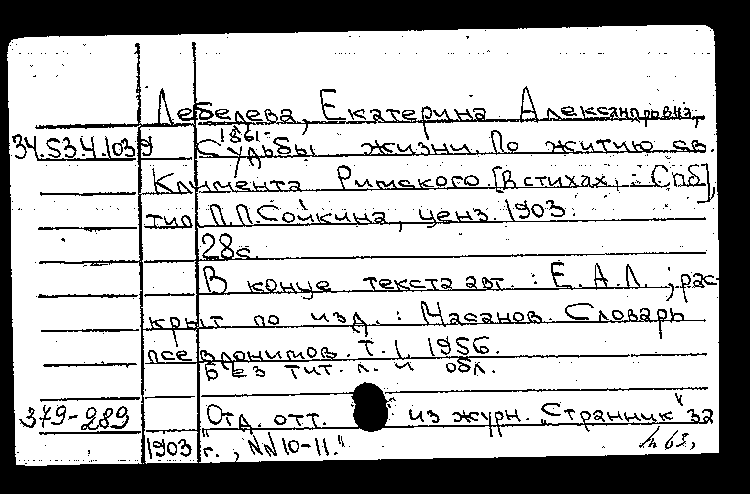 Лебедева, Екатерина Александровна,
1861-
34.53.4.1039 Судьбы жизни. По житию св.
Климента Римского. [В стихах, : Спб],
тип. П.П.Сойкина, ценз. 1903.
28с.
В конце текста авт. : Е.А.Л. ; рас-
крыт по изд. : Масанов. Словарь
псевдонимов. Т.1, 1956.
Без тит. л. и обл.
379-289 "Отд. отт. из журн. "Странник" за
1903 г., NN 10-11."